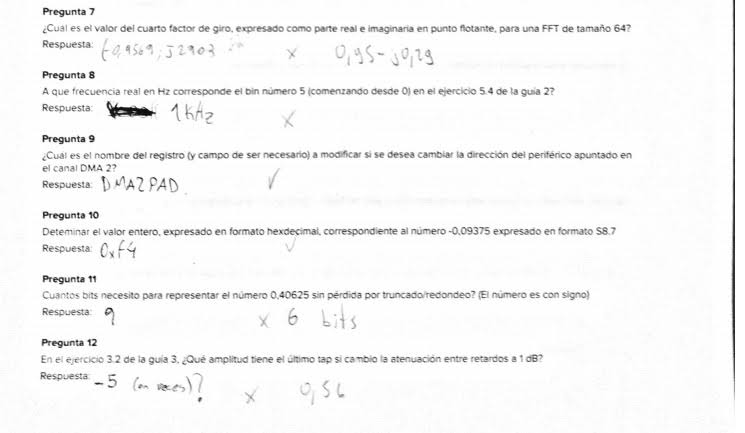 Pregunta 7
¿Cual es el valor del cuarto factor de giro, expresado como parte real e imaginaria en punto flotante, para una FFT de tamaño 64?
Respuesta: (-0,9569; J2903 x 0,95-j0,29
Pregunta 8
A que frecuencia real en Hz corresponde el bin número 5 (comenzando desde 0) en el ejercicio 5.4 de la guia 2?
Respuesta: 1KHz x
Pregunta 9
¿Cual es el nombre del registro (y campo de ser necesario) a modificar si se desea cambiar la dirección del periférico apuntado en
el canal DMA 2?
Respuesta: DMA2PAD ✓
Pregunta 10
Deteminar el valor entero, expresado en formato hexdecimal, correspondiente al número -0,09375 expresado en formato S8.7
Respuesta: 0xf4 ✓
Pregunta 11
Cuantos bits necesito para representar el número 0,40625 sin pérdida por truncado/redondeo? (El número es con signo)
Respuesta: 9 x 6 bits
Pregunta 12
En el ejercicio 3.2 de la guia 3, ¿Qué amplitud tiene el último tap si cambio la atenuación entre retardos a 1 dB?
Respuesta: -5 (en veces)? x 0,56